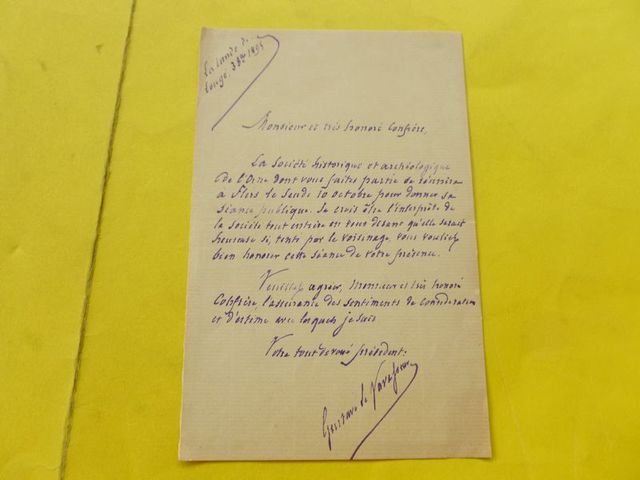 La lande de
Lougé. 3 8bre 1895
Monsieur et très honoré Confrère,
La Société historique et archéologique
de l'Orne dont vous faites partie se réunira
à Flers le Jeudi 10 octobre pour donner sa
séance publique. Je crois être l'interprète de
la Société tout entière en vous disant qu'elle serait
heureuse si, tenté par le voisinage, vous vouliez
bien honorer cette séance de votre présence.
Veuillez agréer, Monsieur et très honoré
Confrère l'assurance des sentiments de considération
et d'estime avec lesquels je suis
Votre tout dévoué président:
Gustave Le Vavasseur